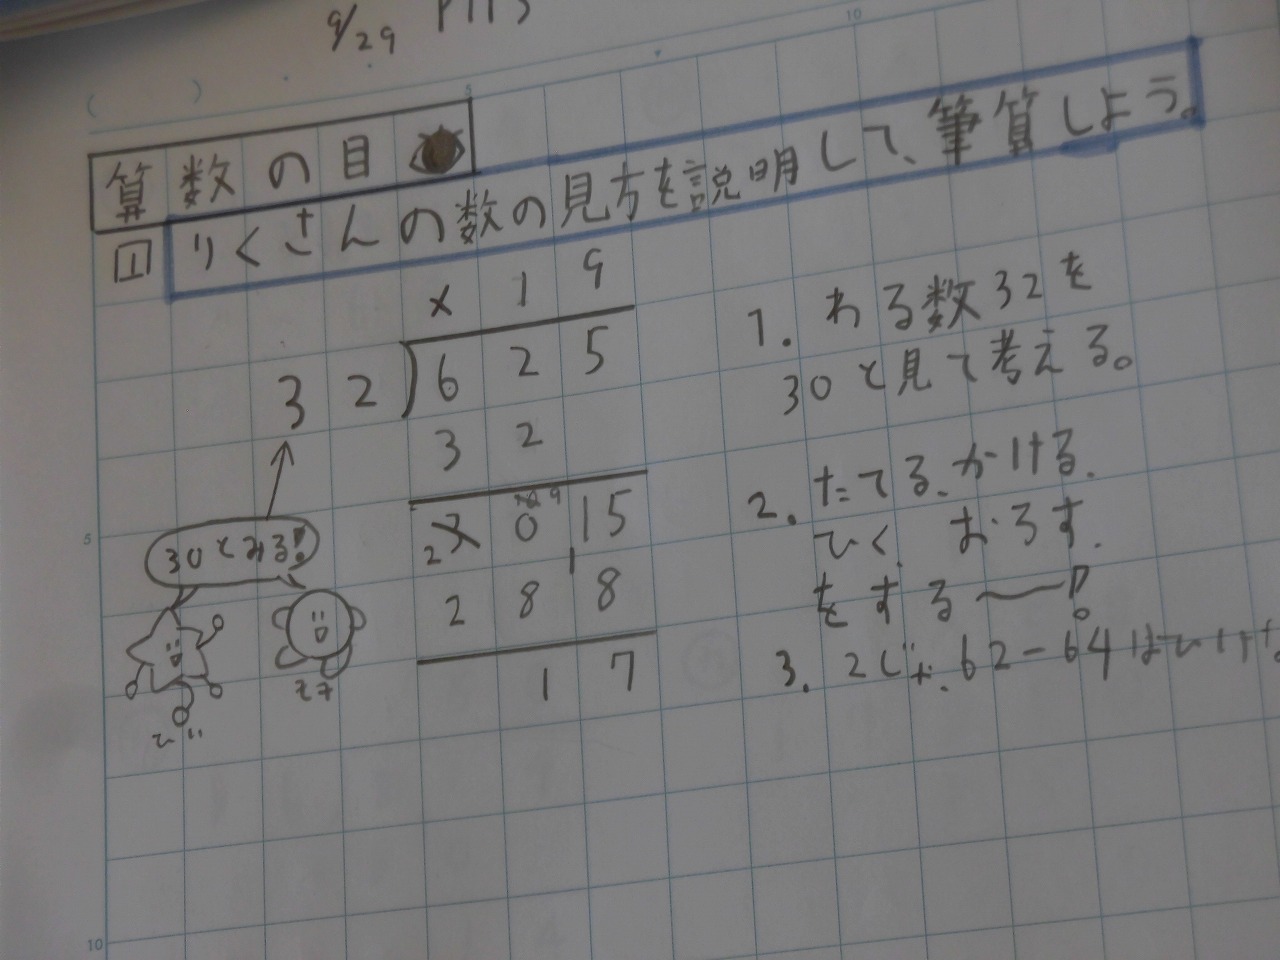 9/29
算数の目
1 りくさんの数の見方を説明して、筆算しよう。
× 1 9
3 2 ) 6 2 5
3 2
3 0 15
2 9
2 8 8
1 7
30とみる!
1. わる数32を
30と見て考える。
2. たてる、かける、
ひく、おろす、
をする〜!
3. 2じゃ、62-64はひけな
5
10
5
10